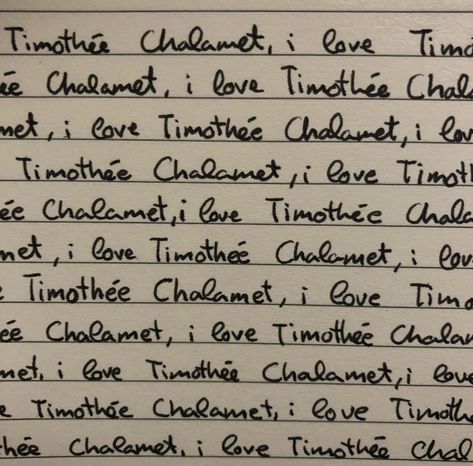 Timothée Chalamet, i love Timo
ée Chalamet, i love Timothée Chala
met, i love Timothée Chalamet, i lov
Timothée Chalamet, i love Timoth
ée Chalamet, i love Timothée Chala
met, i love Timothée Chalamet, i lov
e Timothée Chalamet, i love Timo
ée Chalamet, i love Timothée Chalam
met, i love Timothée Chalamet, i love
e Timothée Chalamet, i love Timothe
thée Chalamet, i love Timothée Chal